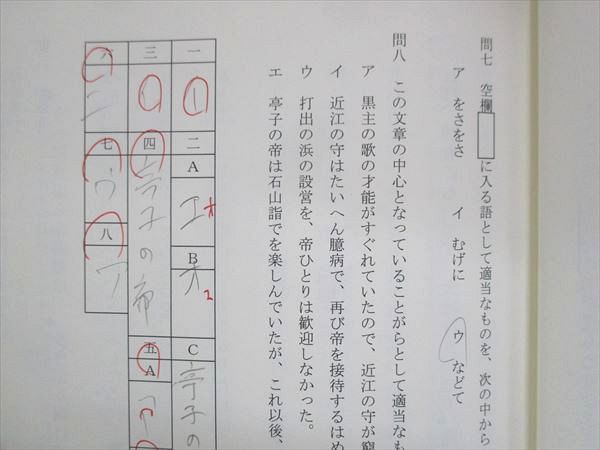 問七 空欄　に入る語として適当なものを、次の中から
ア をさをさ イ むげに ウ などて
問八 この文章の中心となっていることがらとして適当なも
ア 黒主の歌の才能がすぐれていたので、近江の守が窮
イ 近江の守はたいへん臆病で、再び帝を接待するはめ
ウ 打出の浜の設営を、帝ひとりは歓迎しなかった。
エ 亭子の帝は石山詣でを楽しんでいたが、これ以後、
一 二 A エ B オ 2 C 亭子の
三 四 亭子の帝 五 A
六 ニ 七 ウ 八 ア